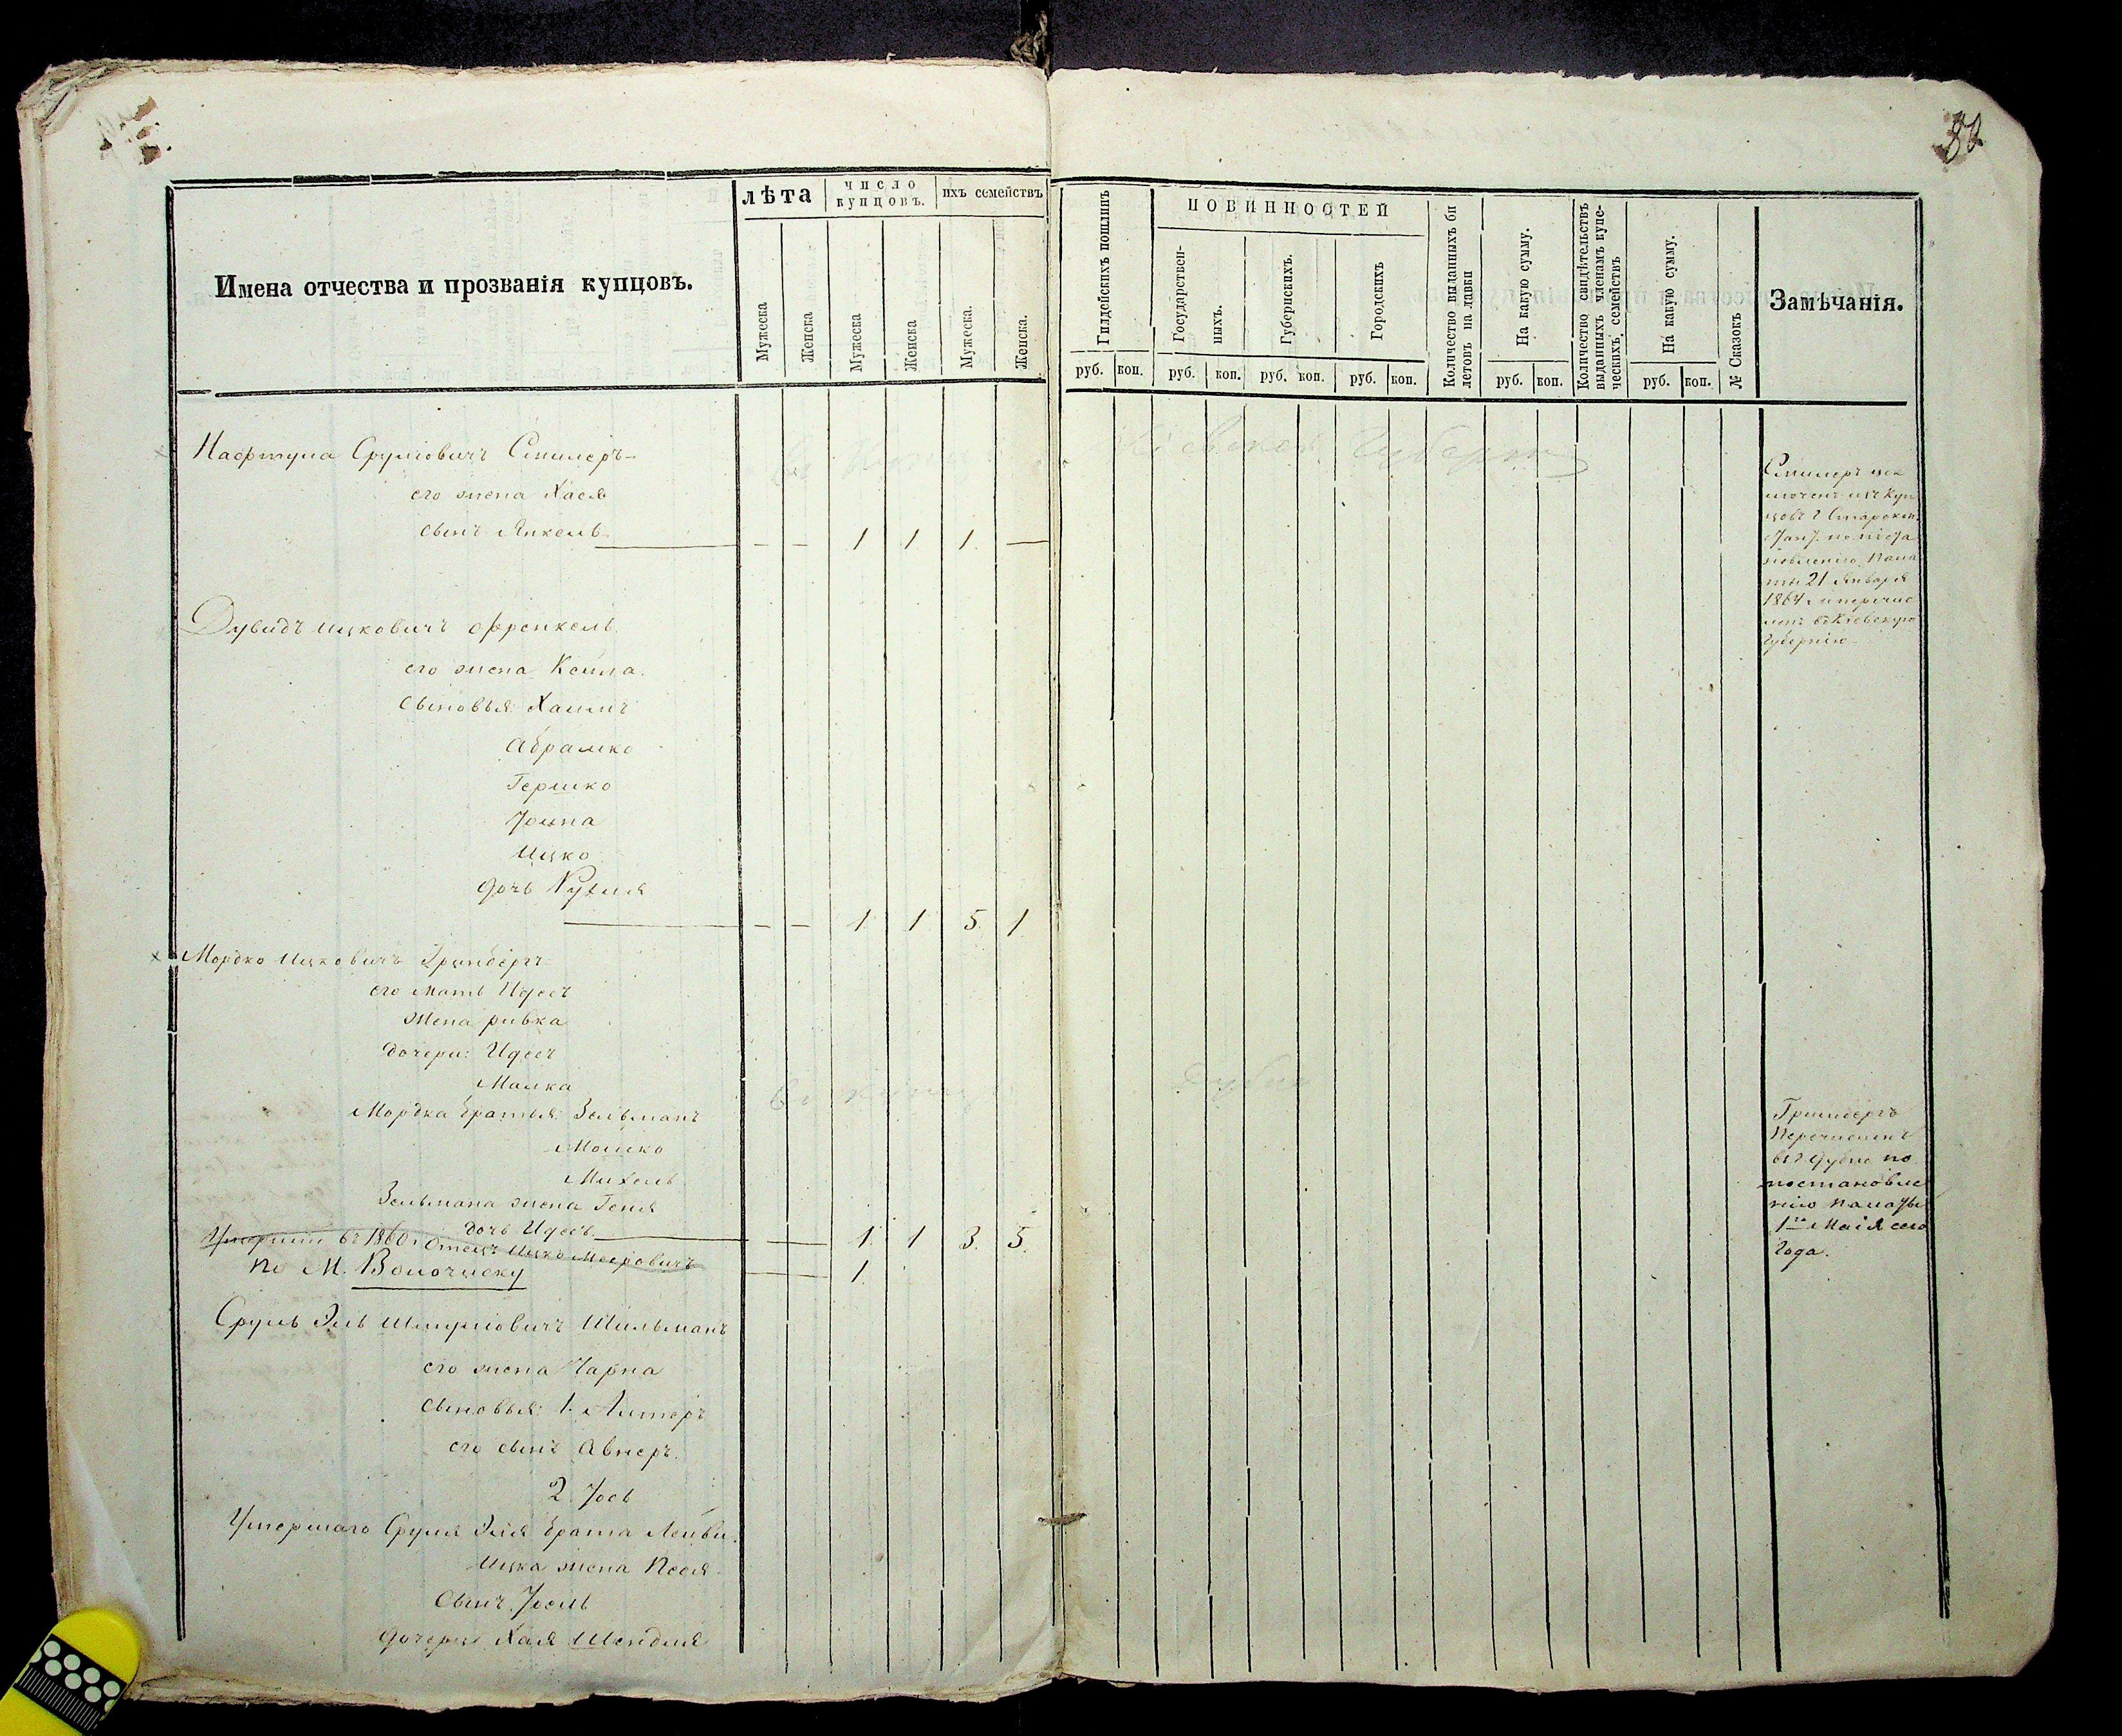 82
Имена отчества и прозванія купцовъ.
лѣта
число купцовъ.
ихъ семействъ
Мужеска
Женска
Мужеска
Женска
Мужеска.
Женска.
Гилдейскихъ пошлинъ
ПОВИННОСТЕЙ
Государствен-
ныхъ.
Губернскихъ.
Городскихъ
Количество выданныхъ би
летовъ на лавки
На какую сумму.
Количество свидѣтельствъ
выданныхъ членамъ купе-
ческихъ, семействъ
На какую сумму.
№ Сказокъ
Замѣчанія.
руб. коп. руб. коп. руб. коп. руб. коп. руб. коп. руб. коп.
Нафтула Срулiовичъ Спилеръ
его жена Хася
сынъ Янкель — — 1 1 1 —
Кіевской Губерніи
Спилеръ иск
люченъ изъ Куп
цовъ г. Старокон.
по поста
новленію Пала
ты 21 Января
1864 г. и перечис
ленъ въ Кіевскую
Губернію
Дувидъ Ицковичъ Френкель
его жена Кейла.
сыновья: Хаимъ
Абрамко
Гершко
Іойна
Ицко
дочь Рухля
— — 1 1 5 1
Мордко Ицковичъ Гринбергъ
его мать Идесъ
жена ривка
дочери: Идесъ
Малка
Мордка братья: Зельманъ
Мошко
Михель
Зельмана жена Геня
дочь Идесъ — 1. 1 3. 5.
Умершій въ 1860 г. Отецъ Ицко Мееровичъ
по М. Волочиску — 1.
Гринбергъ
Перечисленъ
въ г. Дубно по
постановле
нію Палаты
1го Маія сего
года.
Сруль Эль Шмулiовичъ Шильманъ
его жена Чарна
сыновья: 1. Литеръ
его сынъ Авнеръ.
2. Іось
Умершаго Сруля Эля брата Лейбы
Ицка жена Песя
Сынъ Іосль
дочери Хая Шендля